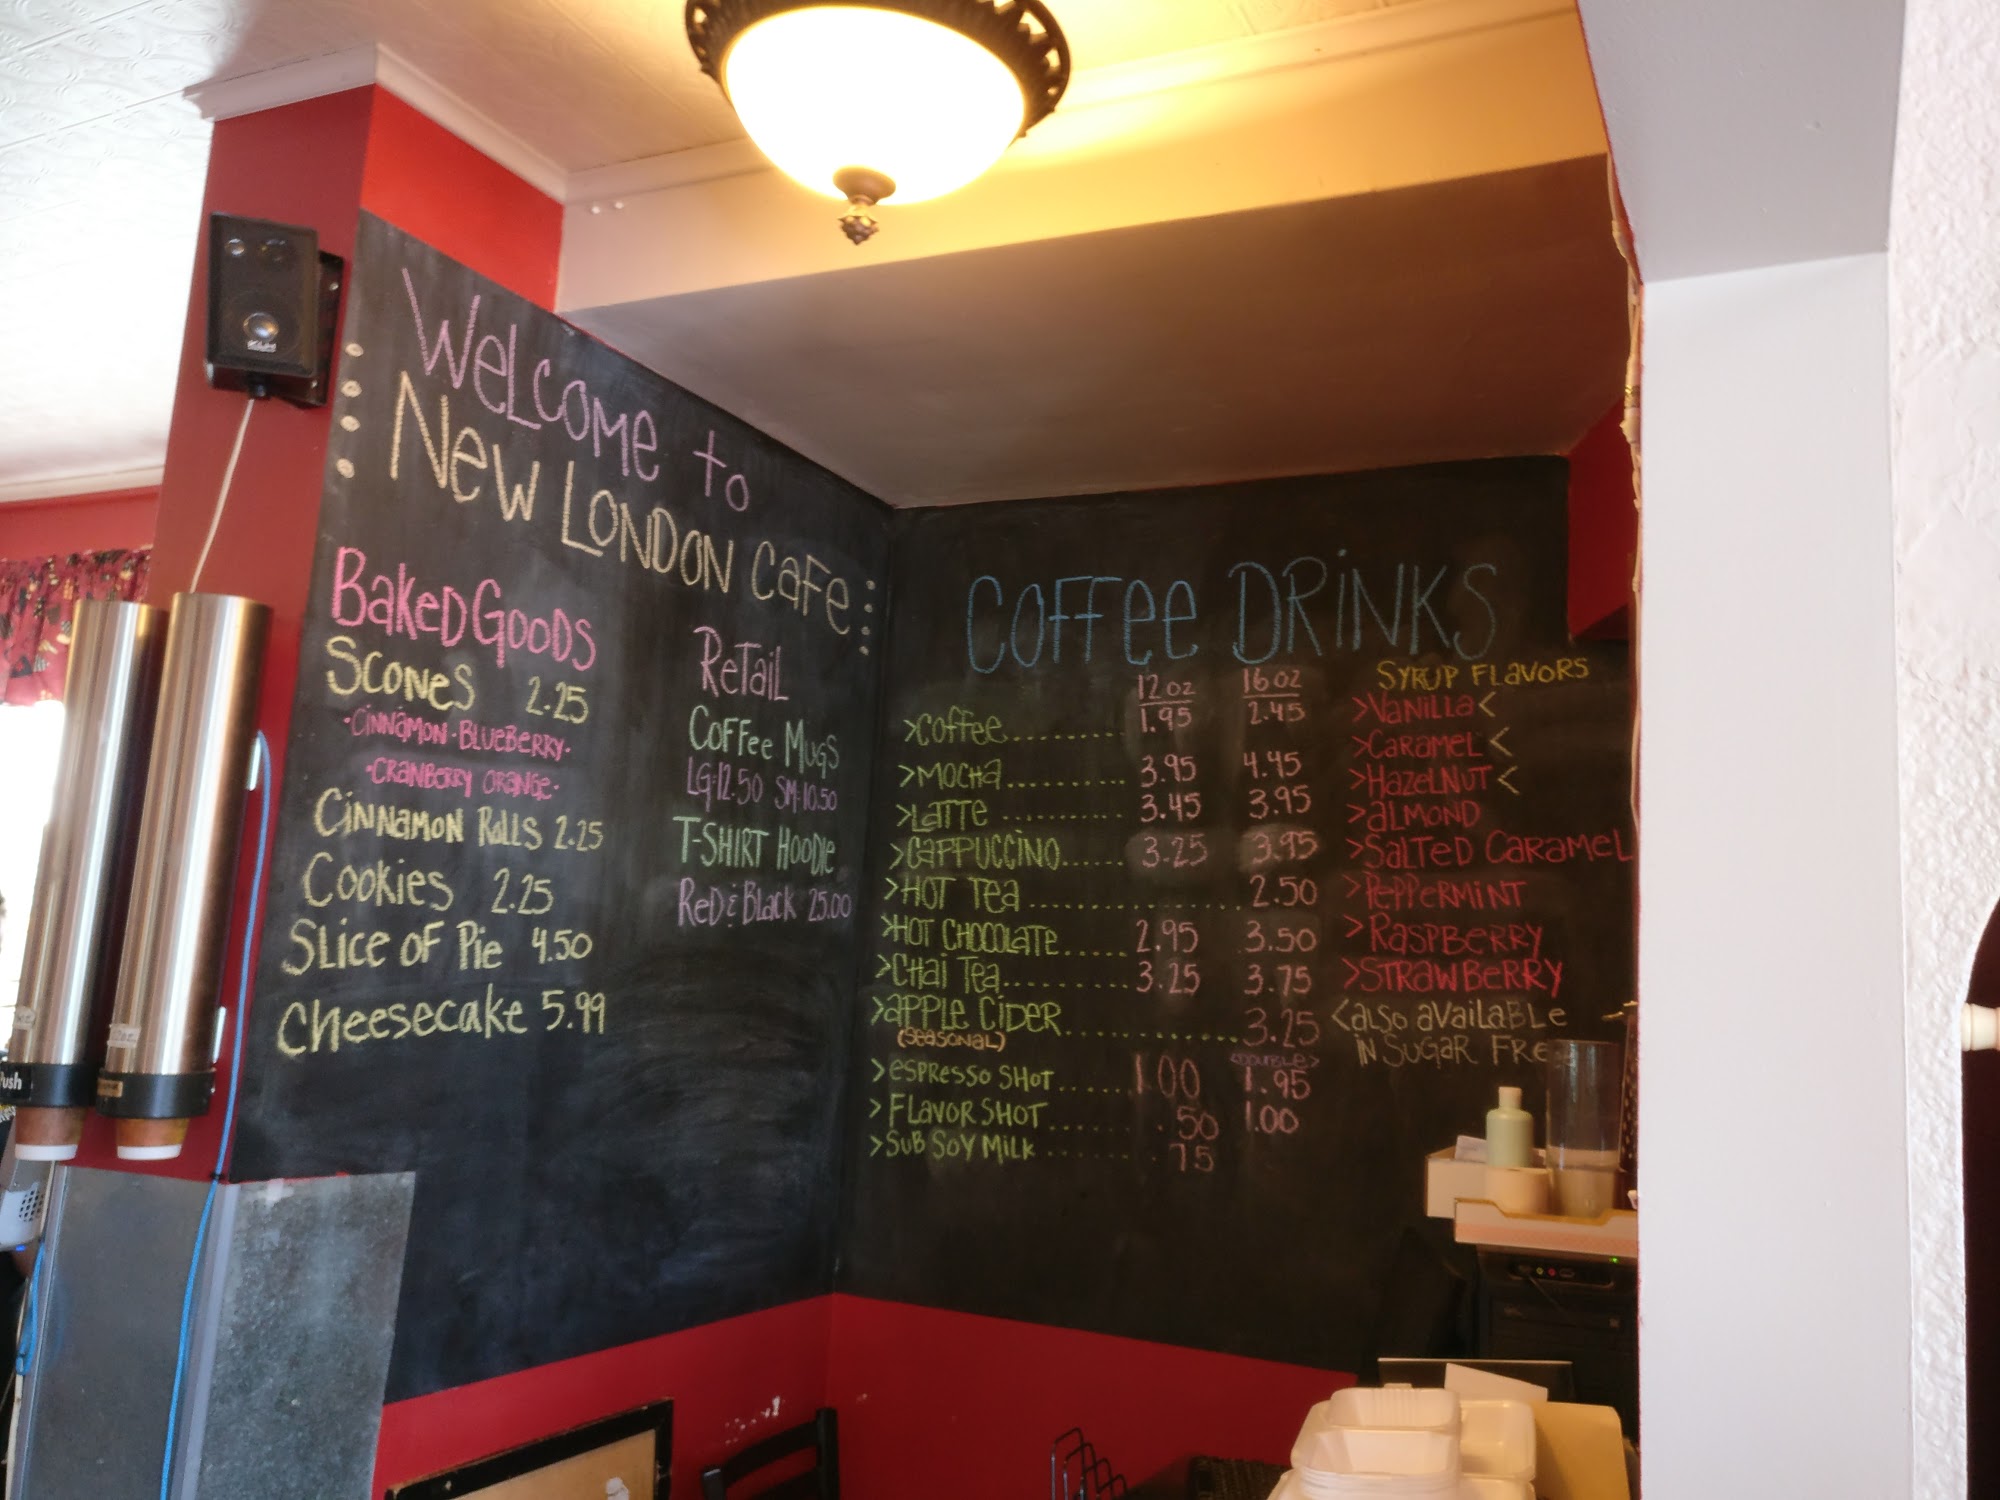 Welcome to
New London Cafe
Baked Goods
Scones 2.25
·Cinnamon·Blueberry·
·Cranberry Orange·
Cinnamon Rolls 2.25
Cookies 2.25
Slice of Pie 4.50
Cheesecake 5.99
Retail
Coffee Mugs
LG·12.50 SM·10.50
T-Shirt Hoodie
Red & Black 25.00
Coffee Drinks
12 oz 16 oz
>Coffee........... 1.95 2.45
>Mocha........... 3.95 4.45
>Latte ........... 3.45 3.95
>Cappuccino...... 3.25 3.95
>Hot Tea .................... 2.50
>Hot Chocolate...... 2.95 3.50
>Chai Tea........... 3.25 3.75
>Apple Cider................ 3.25
(Seasonal)
<double>
>Espresso Shot...... 1.00 1.95
>Flavor Shot....... .50 1.00
>Sub Soy Milk ....... .75
Syrup Flavors
>Vanilla<
>Caramel<
>Hazelnut<
>Almond
>Salted Caramel
>Peppermint
>Raspberry
>Strawberry
<also available
in Sugar Free
KLH
Push